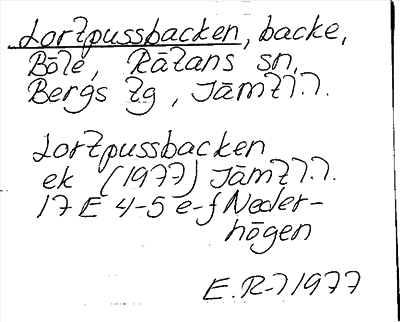 Lortpussbacken, backe,
Böle, Rätans sn,
Bergs tg, Jämtl.
Lortpussbacken
ek (1977) Jämtl.
17 E 4-5 e-f Neder-
högen
E.R-l 1977